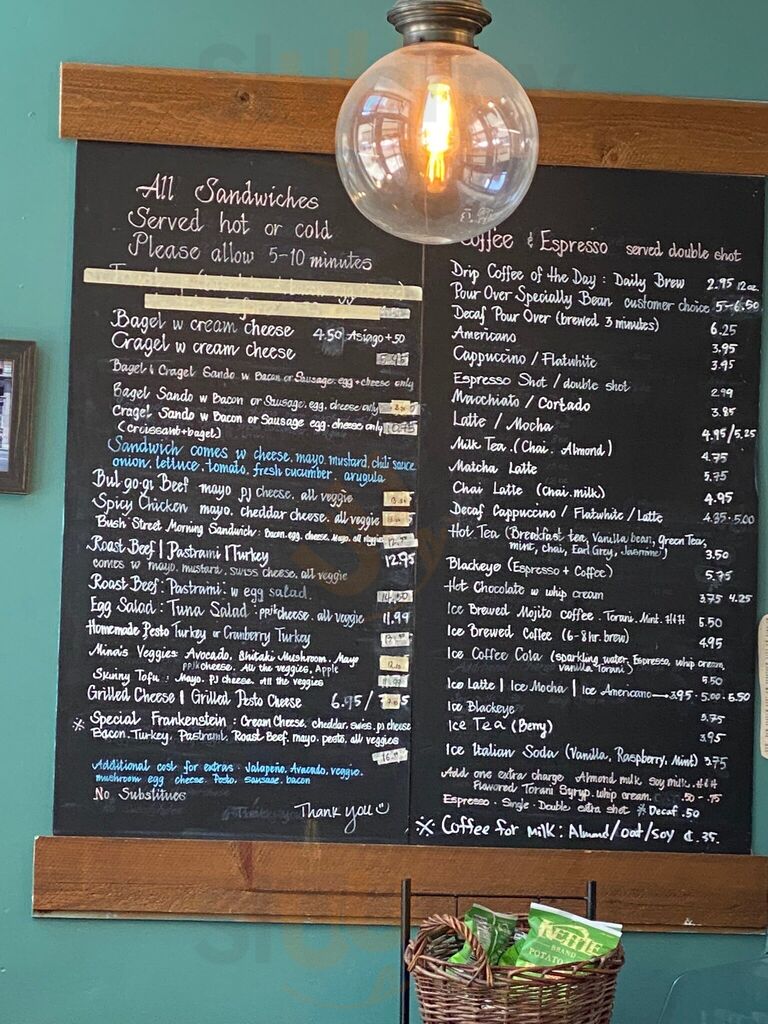 All Sandwiches
Served hot or cold
Please allow 5-10 minutes
Bagel w cream cheese 4.50 Asiago +50
Cragel w cream cheese
Bagel & Cragel Sando w Bacon or Sausage. egg + cheese only
Bagel Sando w Bacon or Sausage. egg, cheese only
Cragel Sando w Bacon or Sausage egg. cheese only 10.75
(croissant+bagel)
Sandwich comes w cheese, mayo, mustard, chili sauce
onion, lettuce, tomato, fresh cucumber, arugula
Bul go-gi Beef mayo pj cheese. all veggie
Spicy Chicken mayo, cheddar cheese. all veggie
Bush Street Morning Sandwich: Bacon. egg. cheese. Mayo. all veggies
Roast Beef | Pastrami | Turkey 12.95
comes w mayo, mustard, swiss cheese, all veggie
Roast Beef: Pastrami: w egg salad.
Egg Salad: Tuna Salad: ppjk cheese. all veggie 11.99
Homemade Pesto Turkey or Cranberry Turkey
Mina's Veggies: Avocado, Shitaki Mushroom. Mayo
ppjk cheese. All the veggies, Apple
Skinny Tofu: Mayo. PJ cheese. All the veggies
Grilled Cheese | Grilled Pesto Cheese 6.95 /
※ Special Frankenstein: Cream Cheese, cheddar, swiss, pj cheese
Bacon. Turkey, Pastrami, Roast Beef. mayo. pesto, all veggies
Additional cost for extras. Jalapeño, Avocado, veggie.
mushroom egg cheese. Pesto, sausage, bacon
No Substitues
Thank you
Coffee & Espresso served double shot
Drip Coffee of the Day: Daily Brew 2.95 12oz.
Pour Over Specialty Bean customer choice 5-6.50
Decaf Pour Over (brewed 3 minutes) 6.25
Americano 3.95
Cappuccino / Flatwhite 3.95
Espresso Shot / double shot 2.99
Macchiato / Cortado 3.85
Latte / Mocha 4.95/5.25
Milk Tea. (Chai. Almond) 4.75
Matcha Latte 5.75
Chai Latte (Chai.milk) 4.95
Decaf Cappuccino / Flatwhite / Latte 4.35-5.00
Hot Tea (Breakfast tea, Vanilla bean, Green Tea,
mint, chai, Earl Grey, Jasmine) 3.50
Blackeye (Espresso + Coffee) 5.75
Hot Chocolate w whip cream 3.75 4.25
Ice Brewed Mojito coffee. Torani. Mint. H&H 5.50
Ice Brewed Coffee (6-8 hr. brew) 4.95
Ice Coffee Cola (sparkling water, Espresso, whip cream,
vanilla Torani) 5.50
Ice Latte | Ice Mocha | Ice Americano 3.95 - 5.00 - 5.50
Ice Blackeye 5.75
Ice Tea (Berry) 3.95
Ice Italian Soda (Vanilla, Raspberry, Mint) 3.75
Add one extra charge Almond milk soy milk. H&H
Flavored Torani Syryp. whip cream. .50 - .75
Espresso - Single - Double extra shot ※ Decaf .50
※ Coffee for milk: Almond/oat/soy ¢.75.
KETTLE
BRAND
POTATO